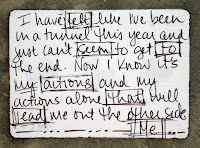 I have felt like I've been
in a tunnel this year and
just can't seem to get to
the end. Now I know it's
my actions and my
actions alone that will
lead me out the other side
Me